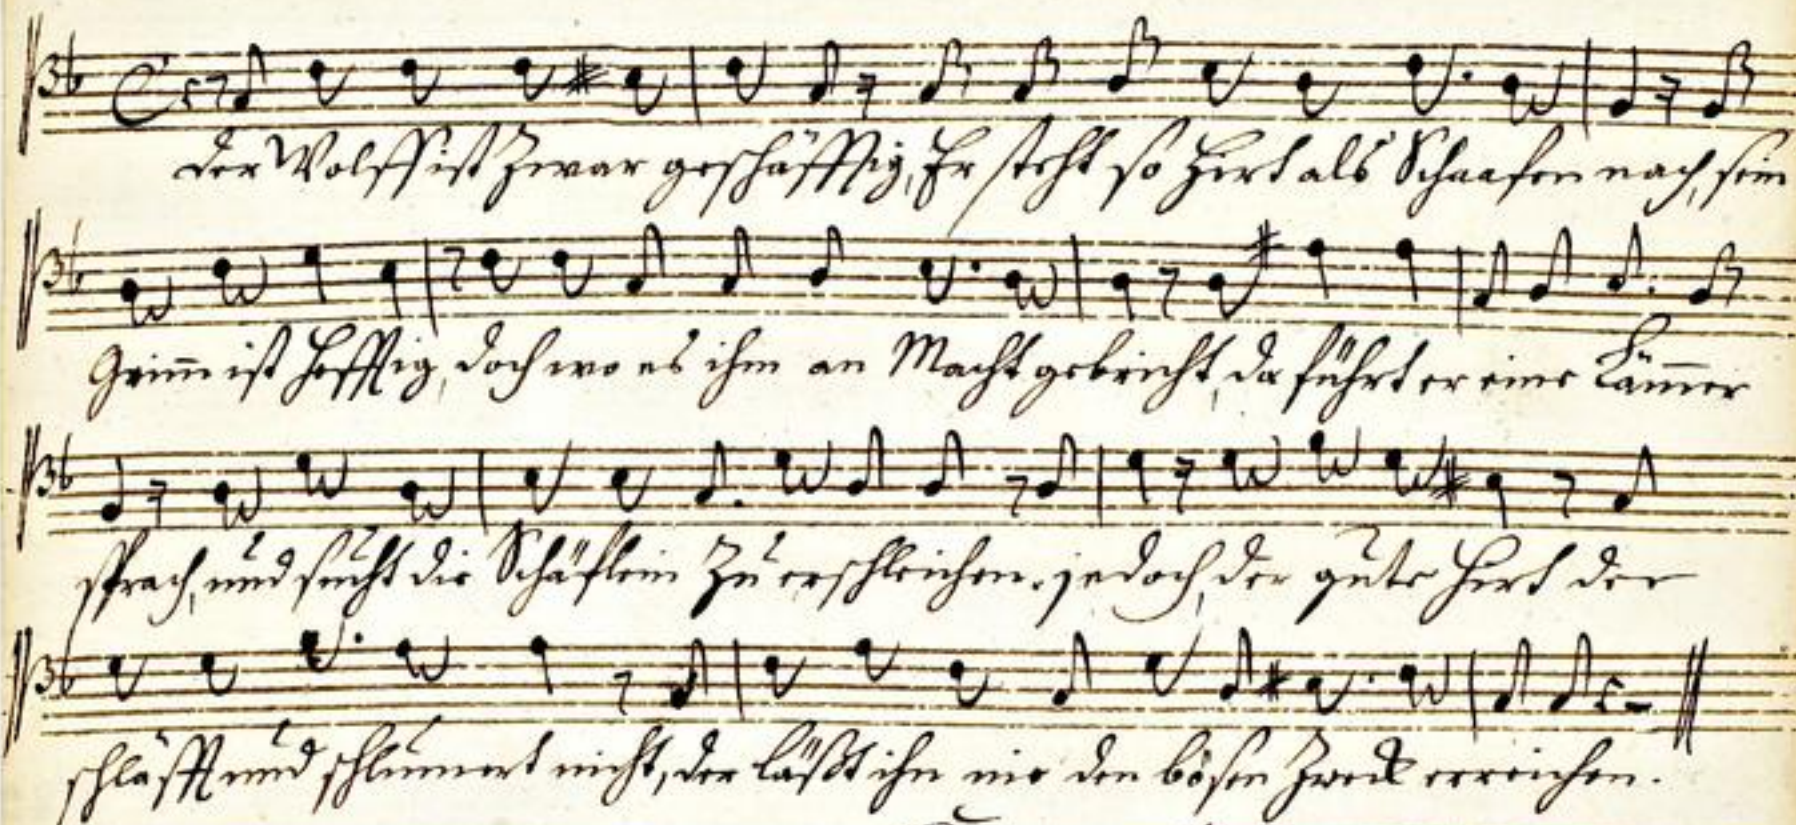 der Wolff ist Zwar geschäfftig, Er steht so Hirt als Schaafen nach, sein
Grim̅ ist hefftig, doch wo es ihm an Macht gebricht, da führt er eine Läm̅er
sprach, und sucht die Schäflein Zu erschleichen. jedoch, der gute Hirt der
schläfft und schlum̅ert nicht, der läßt ihn nie den bösen Zweck erreichen.